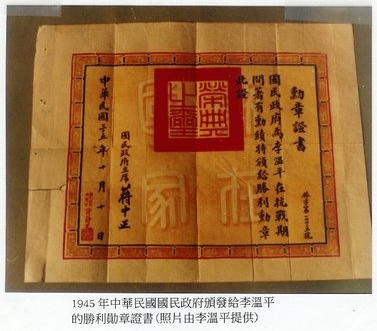 勳章證書
國民政府為李溫平在抗戰期
間著有勳績特頒給勝利勳章
此證
榮典之璽
國民政府主席 蔣中正
中華民國三十五年十月十日
1945年中華民國國民政府頒發給李溫平
的勝利勛章證書(照片由李溫平提供)